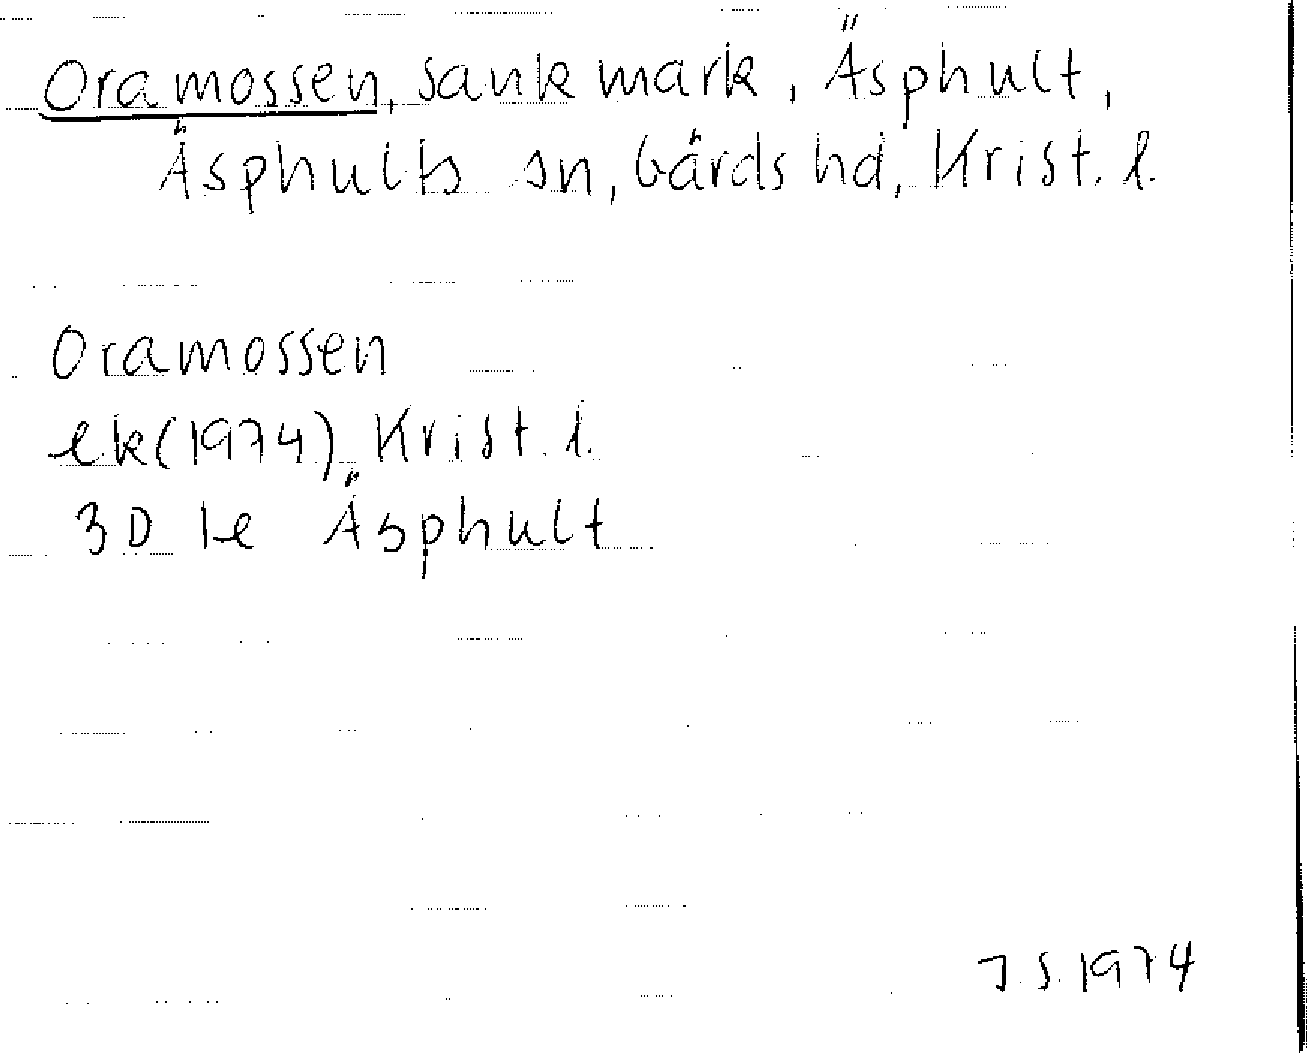 Oramossen, sank mark, Äsphult,
Äsphults sn, Gärds hd, Krist. l.
Oramossen
ek (1974) Krist. l.
3D 1e Äsphult
J.S. 1974